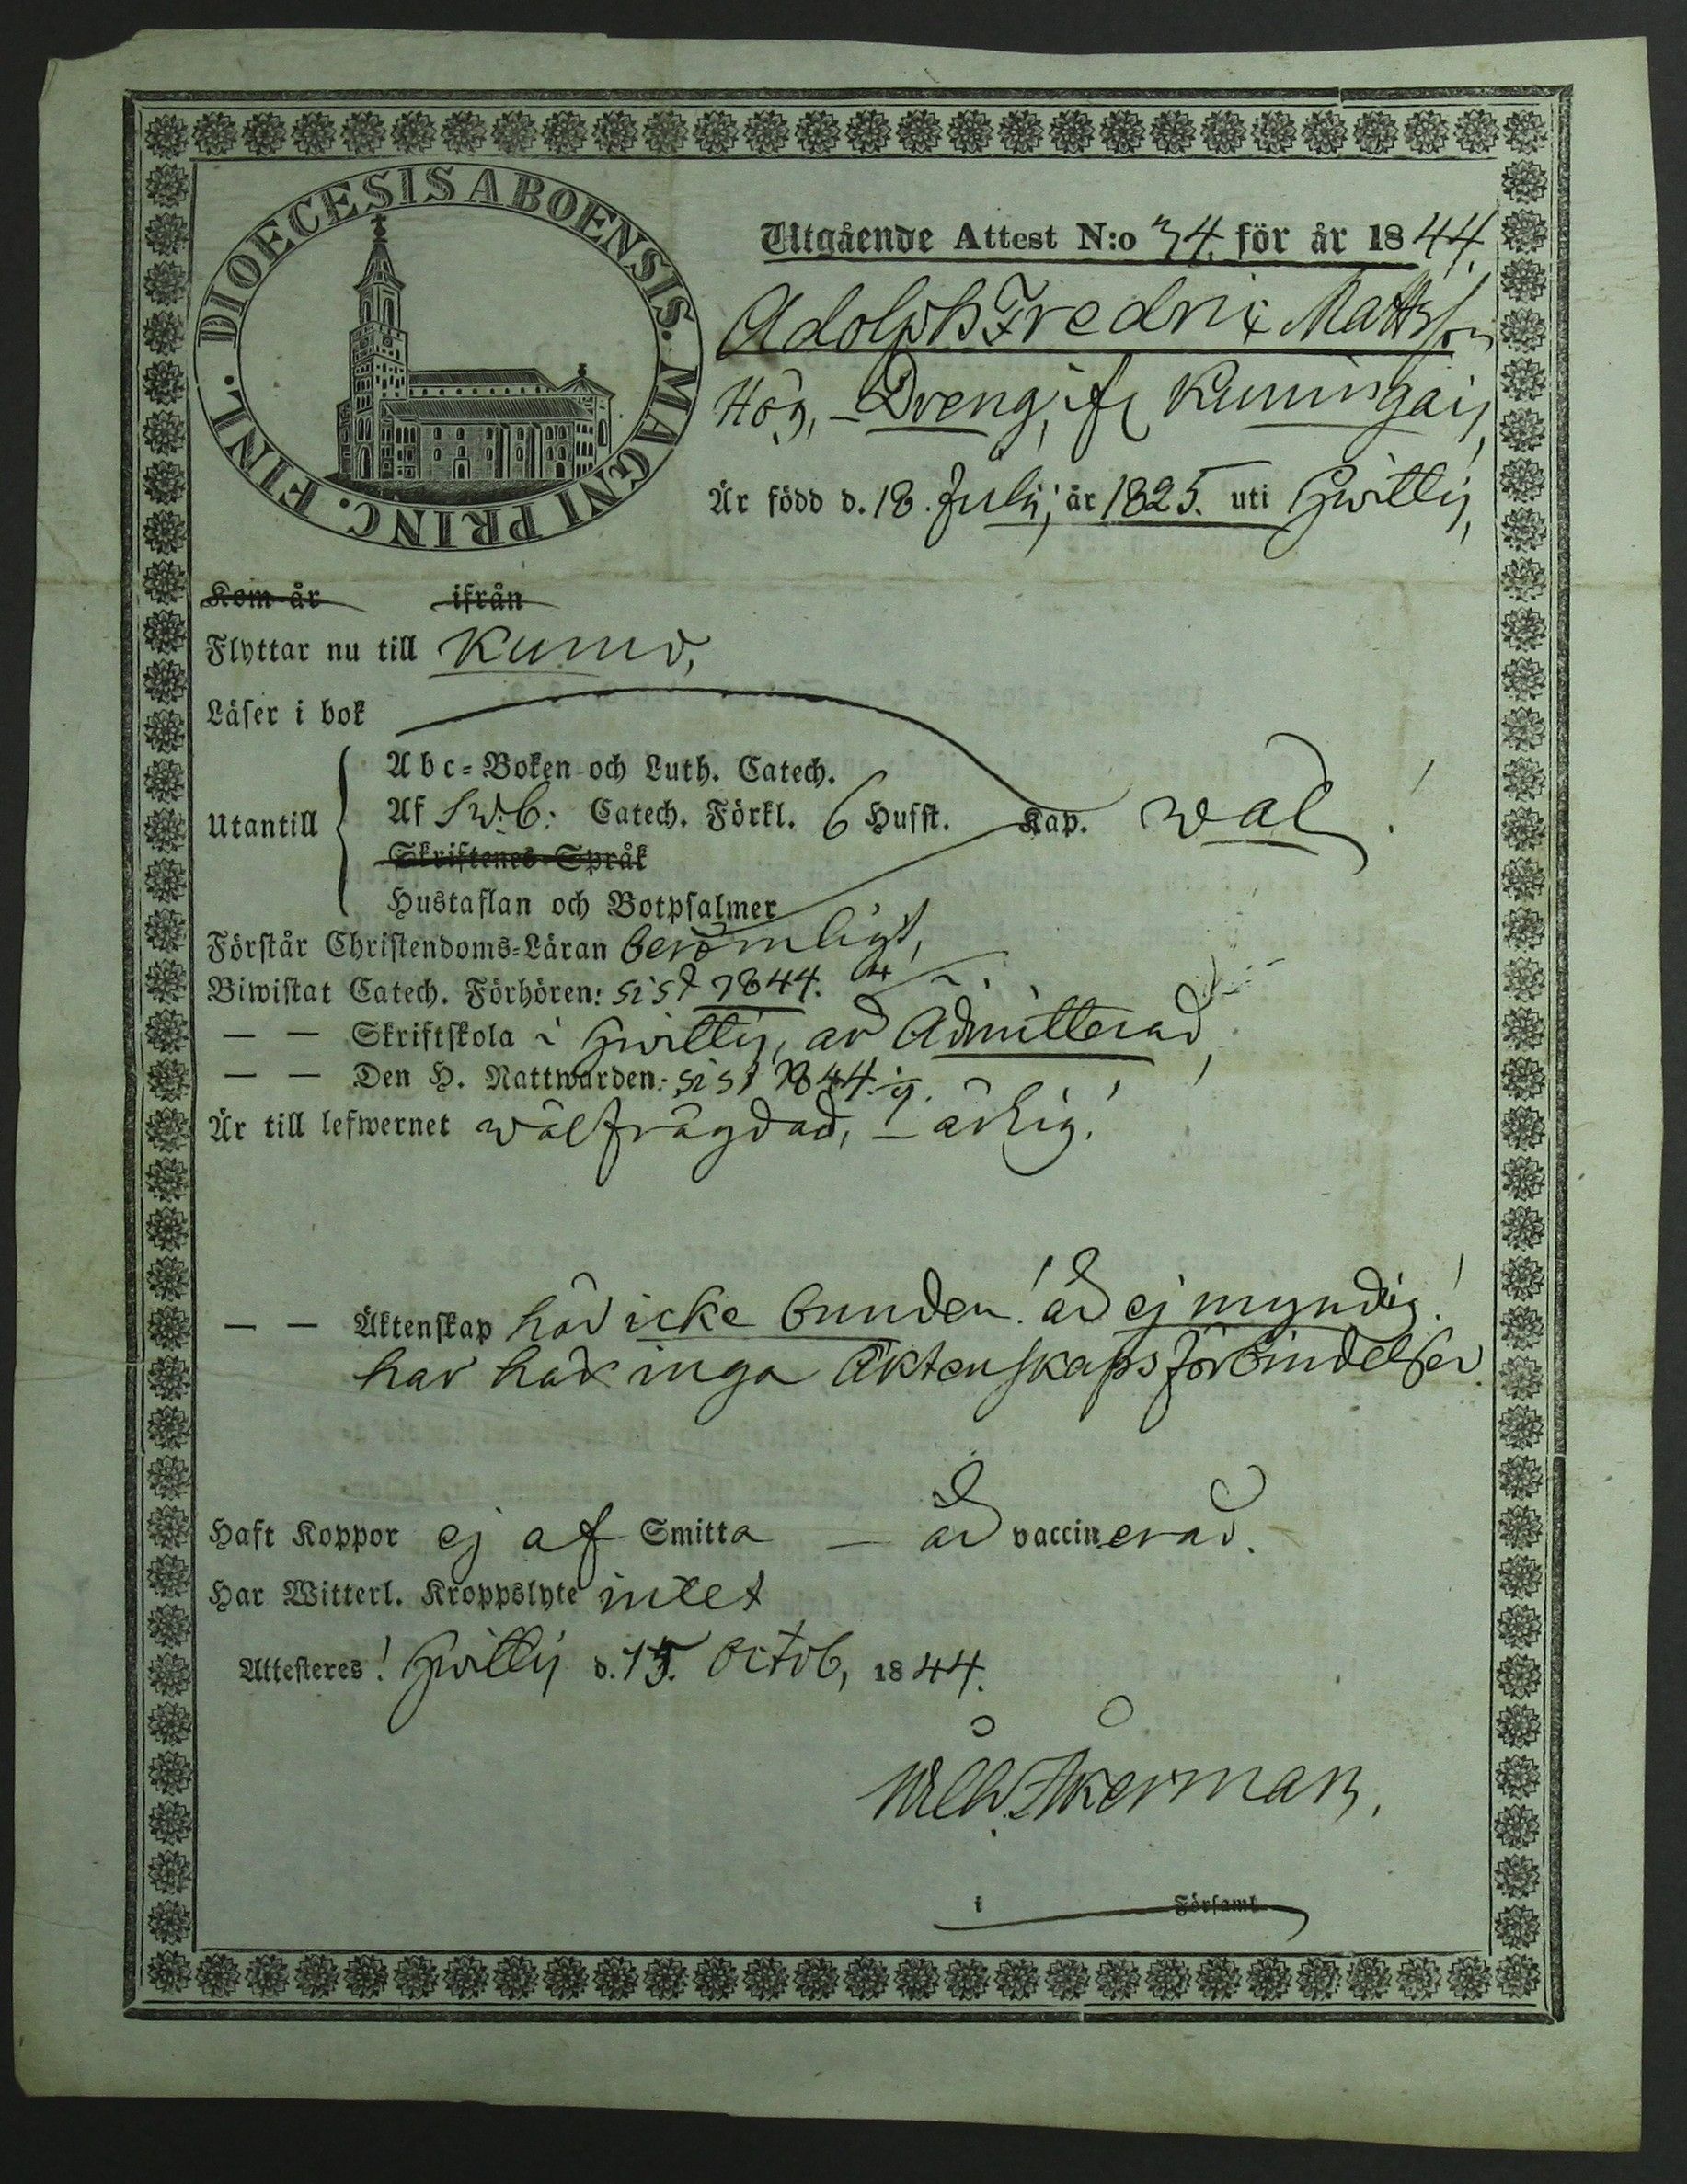 DIOECESIS ABOENSIS. MAGNI PRINC. FINL.
Utgående Attest N:o 34. för år 1844.
Adolph Fredric Mattsson
Dreng, ifr
Är född d. 18. Julij, år 1825. uti Hvittis,
Kom år ifrån
Flyttar nu till Kumo,
Läser i bok
Abc-Boken och Luth. Catech.
Utantill Af Sw:b: Catech. Förkl. 6 Hufst. Kap. wäl!
Skriftenes-Språk
Hustaflan och Botpsalmer
Förstår Christendoms-Läran berömligt,
Biwistat Catech. Förhören: sist 1844.
— — Skriftskola i Hvittis, är Admitterad,
— — Den H. Nattwarden: sist 1844.
Är till lefwernet wälfrägdad, — ärlig!
— — Äktenskap här icke bunden! är ej myndig!
har här inga Äktenskapsförbindelser.
Haft Koppor ej af Smitta — är vaccinerad.
Har Witterl. Kroppslyte intet
Attesteres! Hvittis d. 15. Octob, 1844.
Åkerman.
i Församl